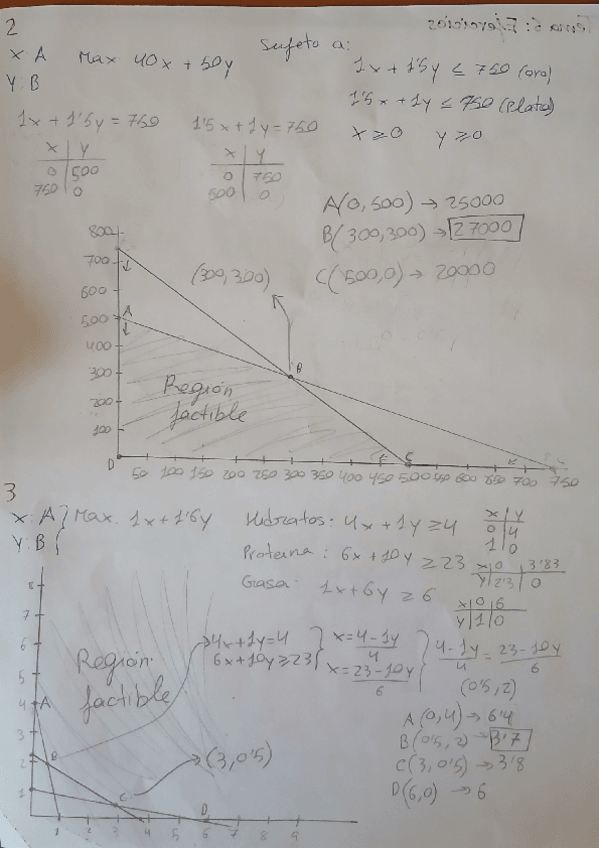 Tema 5: Ejercicios
2
X: A   Max 40x + 50y   Sujeto a:
Y: B
1x + 1'5y ≤ 750 (oro)
1'5x + 1y ≤ 750 (Plata)
x ≥ 0   y ≥ 0
1x + 1'5y = 750   1'5x + 1y = 750
x | y   x | y
0 | 500   0 | 750
750 | 0   500 | 0
A(0, 500) → 25000
B(300, 300) → 27000
C(500, 0) → 20000
800
700
600
500
400
300
200
100
A
(300, 300)
B
Región
factible
D
C
50 100 150 200 250 300 350 400 450 500 550 600 650 700 750
3
X: A } Max. 1x + 1'6y
Y: B {
Hidratos: 4x + 1y ≥ 4
x | y
0 | 4
1 | 0
Proteina: 6x + 10y ≥ 23
x | 0 | 3'83
y | 2'3 | 0
Grasa: 1x + 6y ≥ 6
x | 0 | 6
y | 1 | 0
4x + 1y = 4
6x + 10y ≥ 23
x = 4 - 1y / 4
x = 23 - 10y / 6
4 - 1y / 4 = 23 - 10y / 6
(0'5, 2)
A (0, 4) → 6'4
B (0'5, 2) → 3'7
C (3, 0'5) → 3'8
D (6, 0) → 6
8
7
6
5
4
3
2
1
Región
factible
A
B
C
D
(3, 0'5)
1 2 3 4 5 6 7 8 9